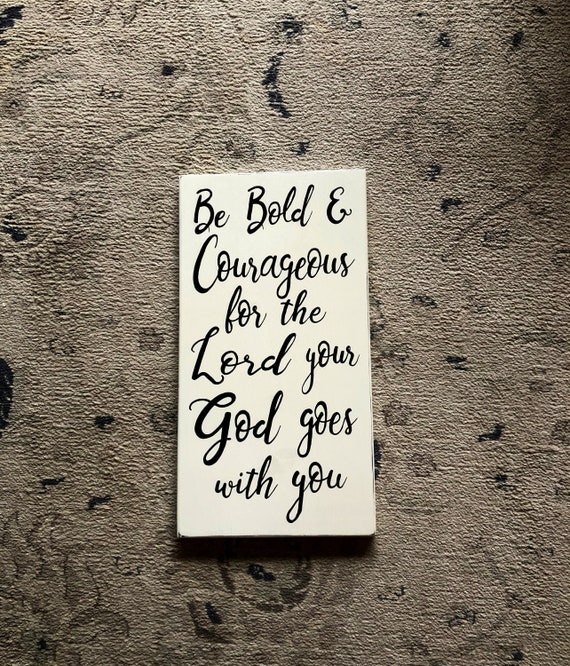 Be Bold &
Courageous
for the
Lord your
God goes
with you